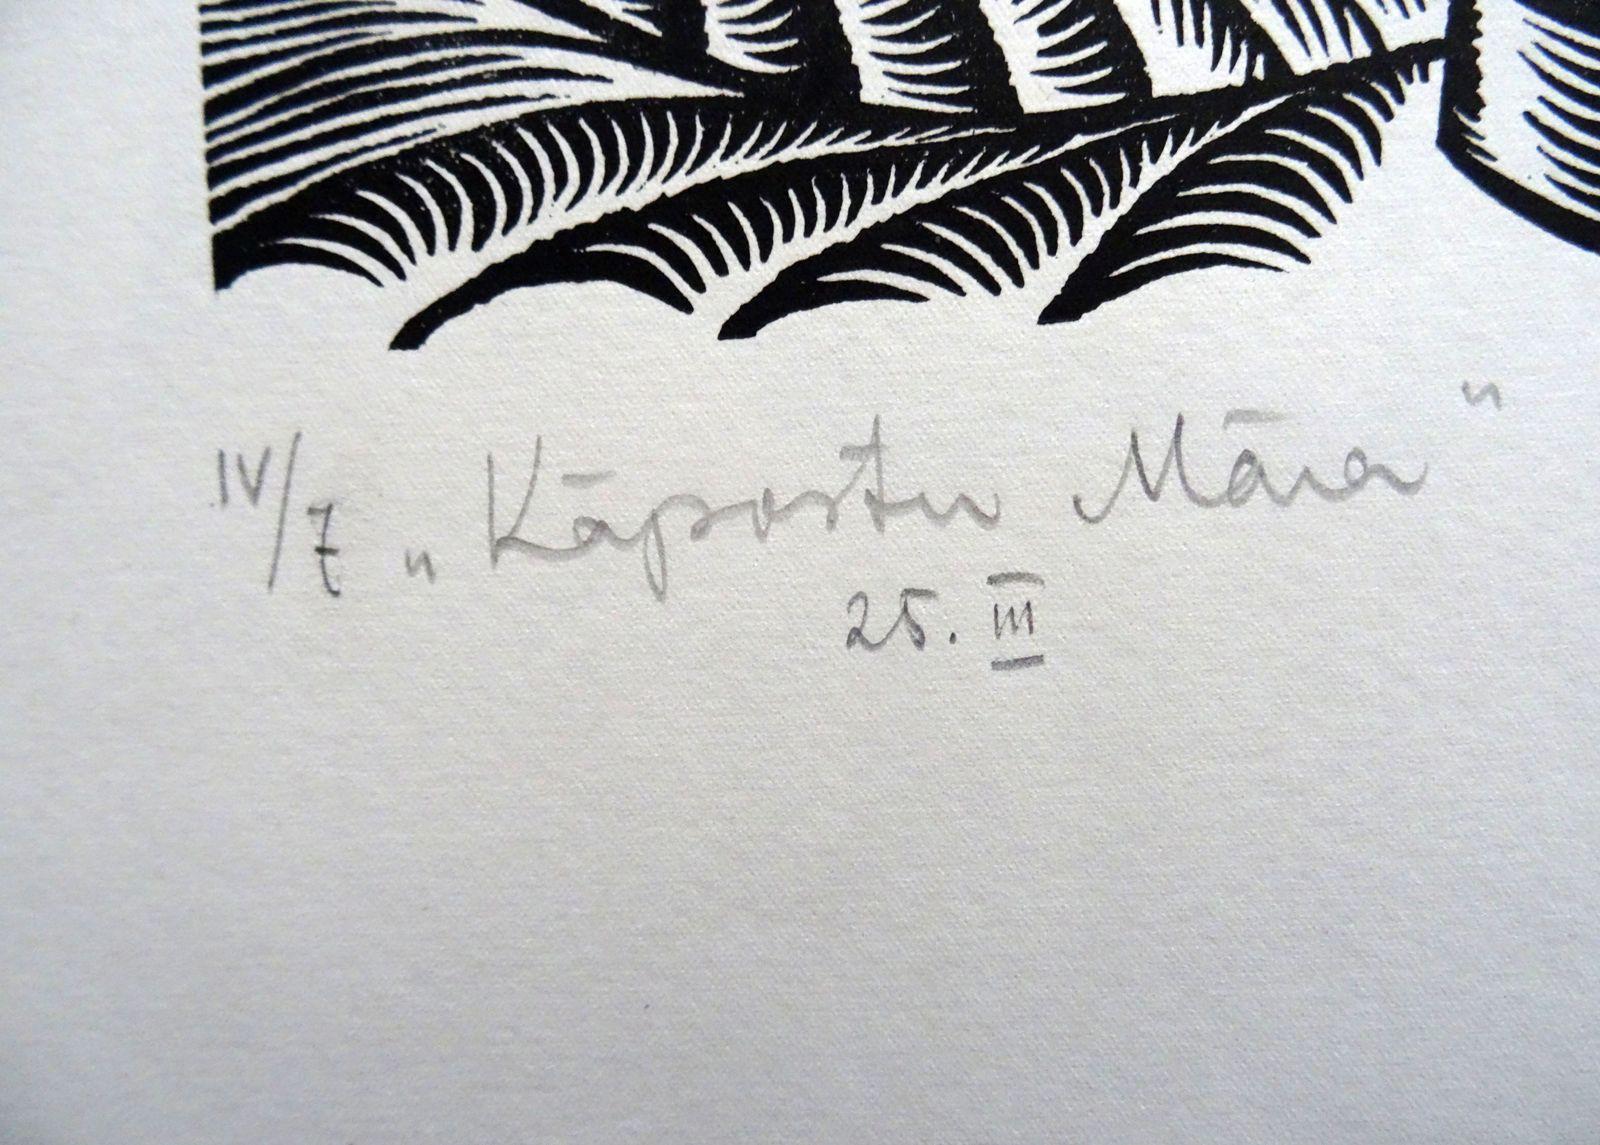 IV/7 „Kāpostu Māra"
25. III